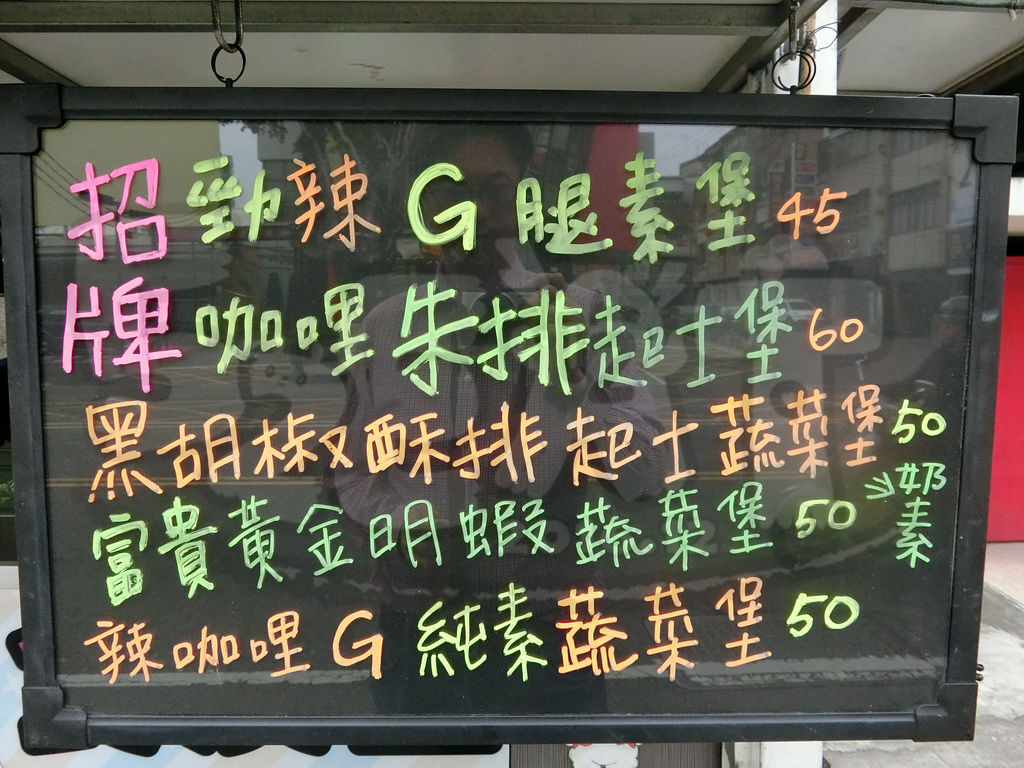 招 勁辣G腿素堡 45
牌 咖哩朱排起士堡 60
黑胡椒酥排起士蔬菜堡 50
富貴黃金明蝦蔬菜堡 50 奶素
辣咖哩G純素蔬菜堡 50